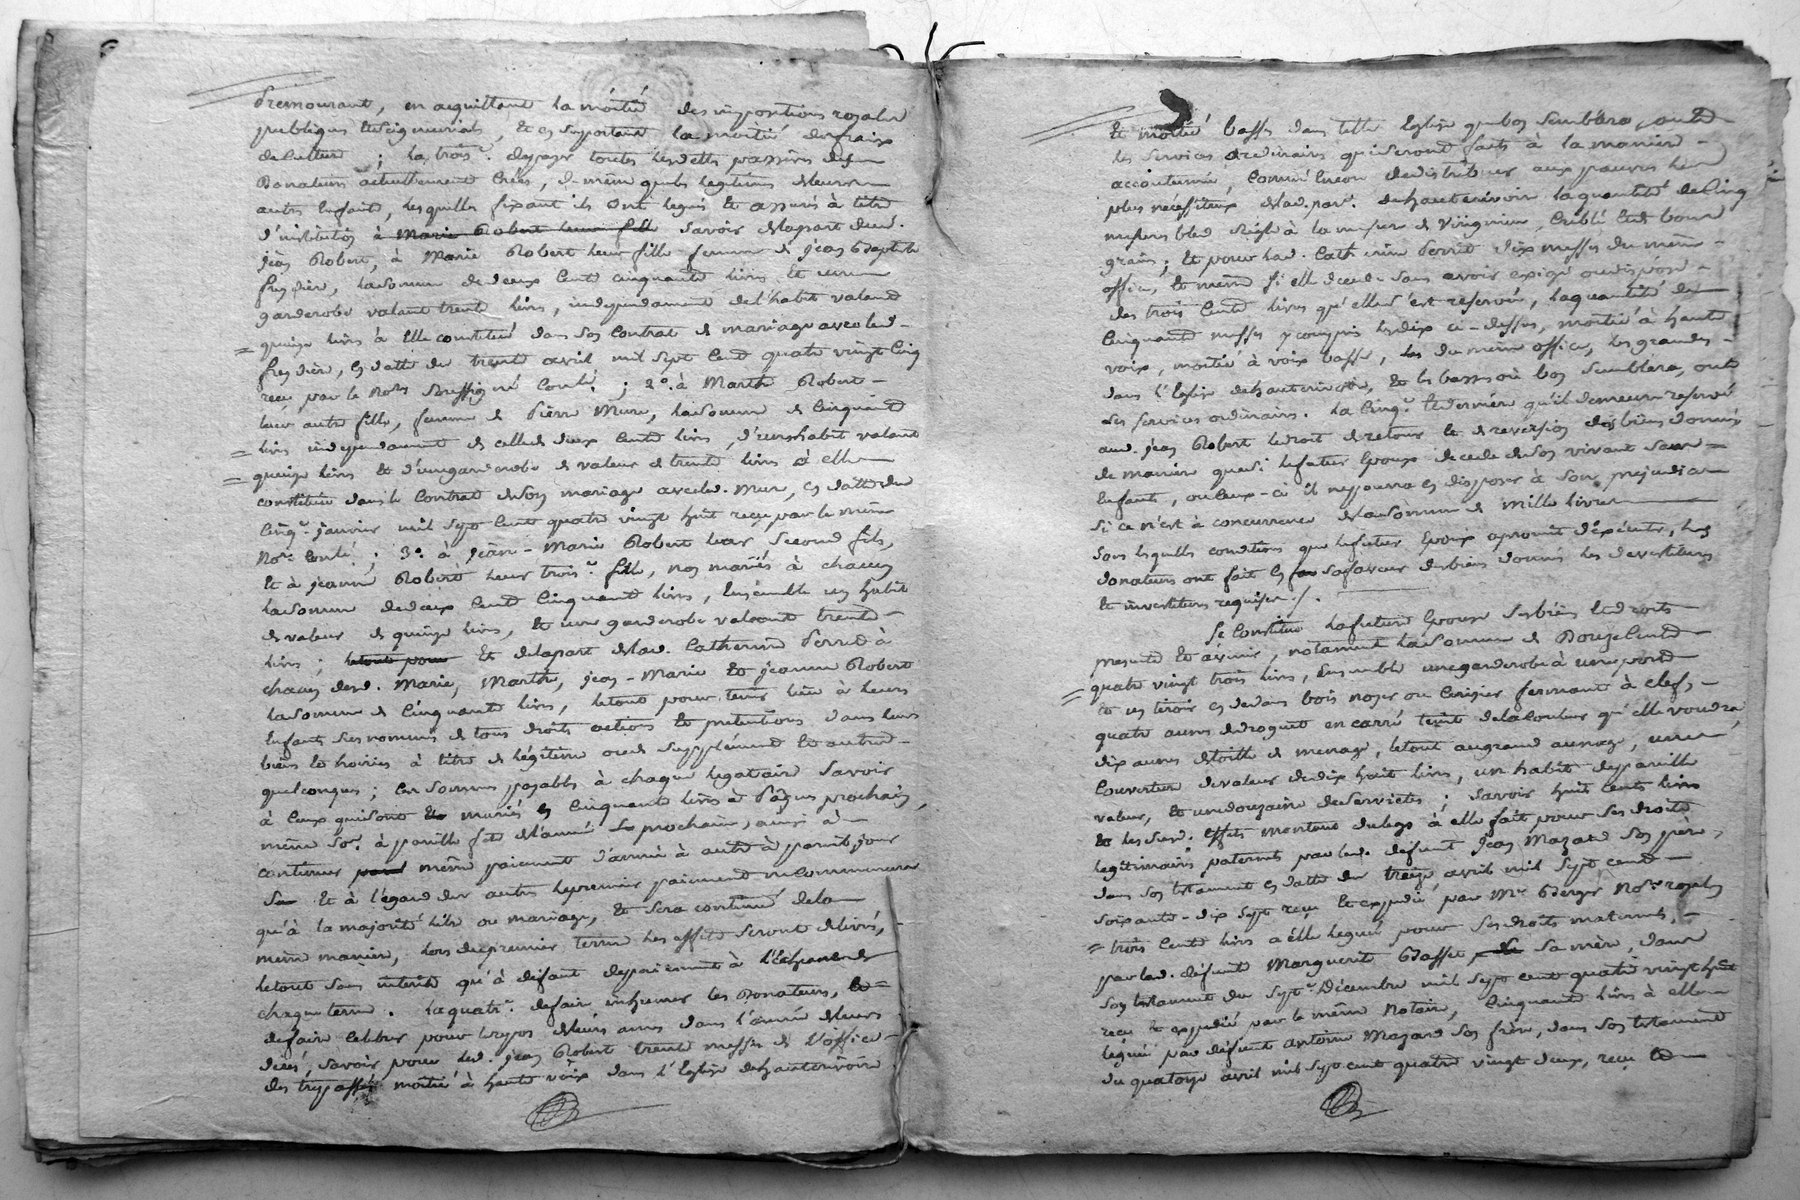 demourant, en acquittant la moitié des impositions royales
publiques et seigneuriales, et en suportant la moitié des fraix
de culture ; la trois.e de payer toutes les dettes passives des
Donateurs actuellement créés, de même que les legitimes de leurs
autres Enfants, lesquelles fixant ils ont legué et assurés à titre
d'institution à Marie Robert leur fille savoir de la part dud.
jean Robert, à Marie Robert leur fille femme de jean Baptiste
freydière, la somme de deux Cent cinquante livres et une
garderobe valant trente livres, independament de l'habit valant
quinze livres à Elle constitué dans son Contrat de mariage avec led.
freydière, en datte du trente avril mil sept Cent quatre vingt Cinq
reçu par le No.re Soussigné ; 2.o à Marthe Robert
leur autre fille, femme de Pierre Mure, la somme de Cinquante
livres independament de celle de deux Cent livres, d'un habit valant
quinze livres et d'une garderobe de valeur de trente livres à elle
constituée dans le Contrat de son mariage avec led. Mure, en datte du
Cinq.e janvier mil sept Cent quatre vingt huit reçu par le même
No.re ; 3.o à jean-Marie Robert leur second fils,
et à jeanne Robert leur trois.e fille, non mariés à chacun
la somme de deux Cent Cinquante livres, Ensemble un habit
de valeur de quinze livres, et une garderobe valant trente
livres ; le tout pour et de la part de lad. Catherine Perret à
chacun desd. Marie, Marthe, jean-Marie et jeanne Robert
la somme de Cinquante livres, le tout pour tenir lieu à leurs
Enfants sus nommés de tous droits actions et pretentions dans leurs
biens et hoiries à titre de légitime ou de supplément et autre
quelconques ; Ces sommes payables à chaque legataire savoir
à Ceux qui sont mariés Cinquante livres à Pâques prochain,
même So.e à pareille fête de l'année prochaine, ainsi à
continuer même paiement d'année à autre à pareil jour
Et à l'égard des autres le premier paiement ne commencera
qu'à la majorité libre ou mariage, et sera continué de la
même maniere, lors du premier terme les effets seront delivrés,
le tout sans interêts qu'à défaut de paiement à l'échéance de
chaque terme. La quatr.e de faire inhumer les Donateurs, et
de faire celebrer pour le repos de leurs ames dans l'année de leurs
décès, savoir pour led. jean Robert trente messes de l'office
des trepassés moitié à haute voix dans l'Eglise de hauterivoire
Et moitié basses dans telle Eglise que bon semblera, outre
les services ordinaires qui seront faits à la maniere
accoutumée, comme Encore de distribuer aux pauvres les
plus necessiteux de lad. par.e de hauterivoire la quantité de Cinq
mesures bled seigle à la mesure de Virignieu, Criblé et bon
grain ; Et pour lad. Catherine Perret dix messes du même
office, et même si elle decede sans avoir exigé ou disposé
des trois Cent livres qu'elle s'est reservée, la quantité de
Cinquante messes y compris les dix ci-dessus, moitié à haute
voix, moitié à voix basse, du même office, les grandes
dans l'Eglise de hauterivoire, et les basses où bon semblera, outre
les services ordinaires. La Cinq.e et derniere qu'il demeure reservé
aud. jean Robert le droit de retour et de reversion des biens donnés
de maniere que si le futur Epoux decede de son vivant sans
Enfants, ou Ceux-ci il ne pourra en disposer à son prejudice
si ce n'est à concurrence de la somme de mille livres
sous lesquelles conditions que le futur Epoux a promit d'executer, les
donateurs ont fait en sa faveur des biens donnés les devestitures
et investitures requises ./.
Se Constitue la future Epouse ses biens et droits
presents et avenir, notament la somme de Douze Cent
quatre vingt trois livres, Ensemble une garderobe à une porte
et un tiroir en dedans bois noyer ou Cerisier fermant à clefs,
quatre aunes de droguet en carré teint de la Couleur qu'elle voudra,
dix aunes de toille de menage, le tout au grand aunage, une
couverture de valeur de dix huit livres, un habit de pareille
valeur, et une douzaine de serviettes ; savoir huit Cents livres
et les susd. effets montant du legs à elle fait pour ses droits
legitimaires paternels par led. defunt Jean Mazard son père,
dans son testament en datte du treize avril mil sept cent
soixante-dix sept reçu et expedié par M.e Berger No.re royal
trois Cents livres a elle legué pour ses droits maternels,
par lad. défunte Marguerite sa mère, dans
son testament du sept.e Décembre mil sept cent quatre vingt huit
reçu et expedié par le même Notaire, Cinquante livres à elle
leguée par défunt antoine Mazard son frère, dans son testament
du quatorze avril mil sept cent quatre vingt deux, reçu et